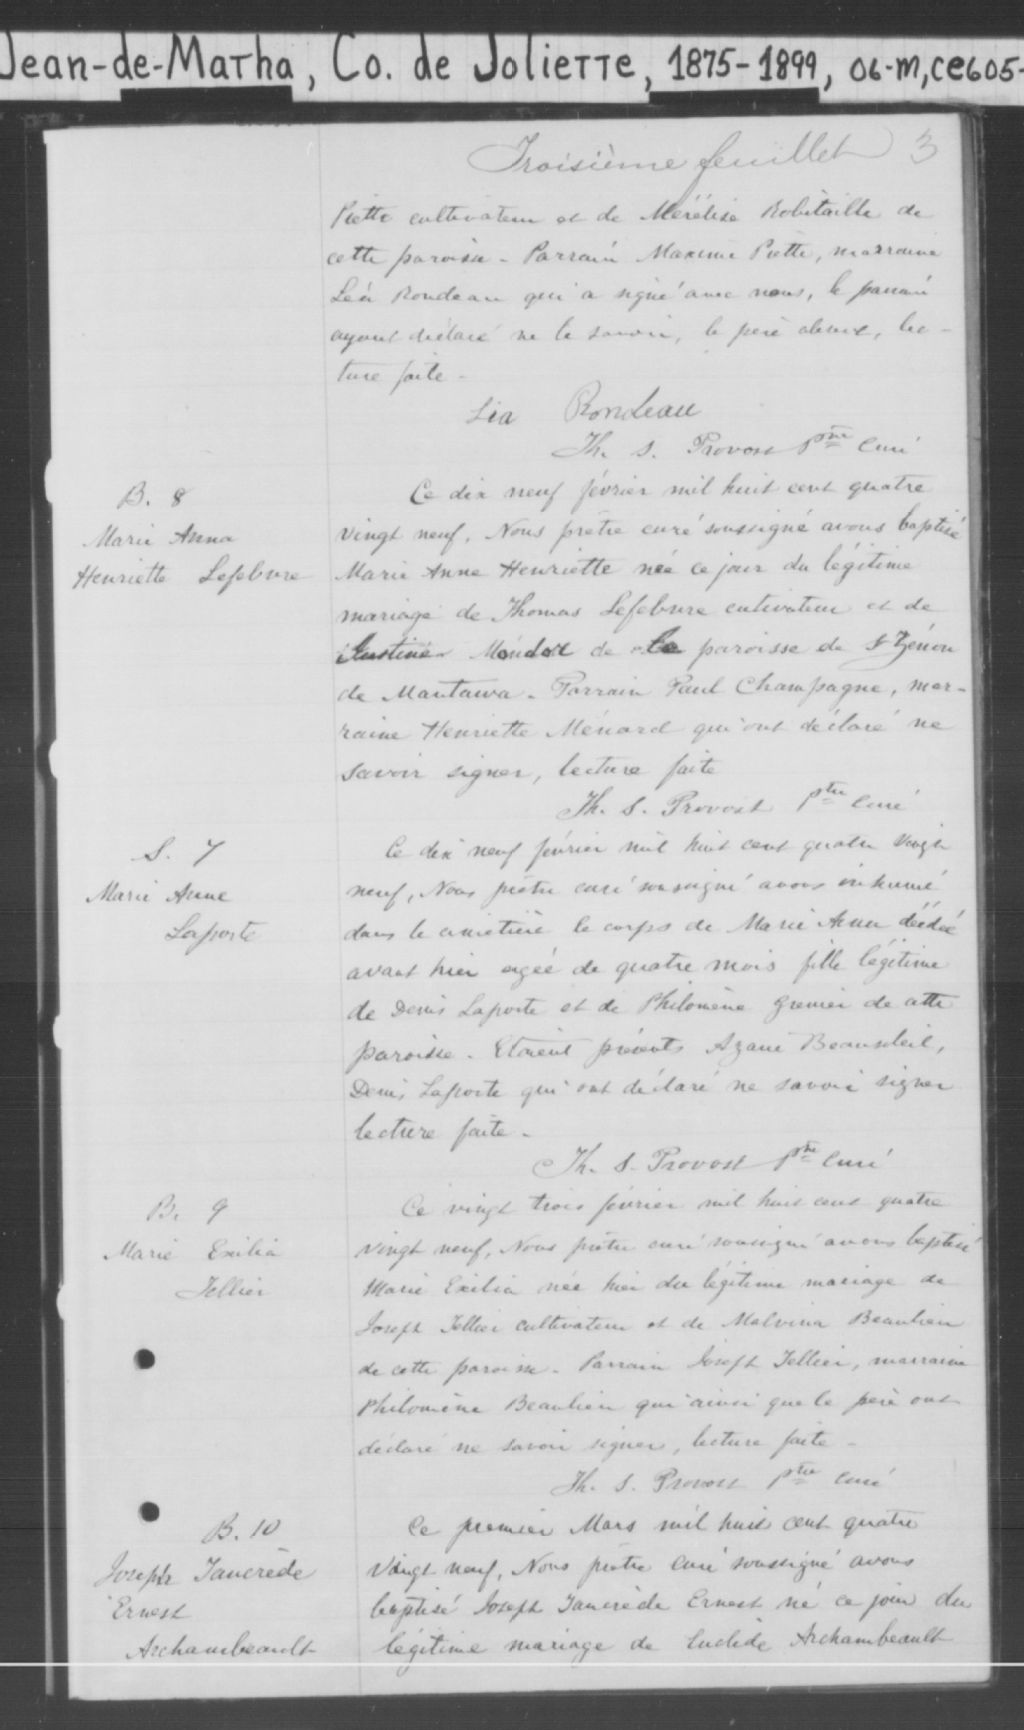 Jean-de-Matha, Co. de Joliette, 1875-1899, 06-M, CE605-
Troisième feuillet 3
Piette cultivateur et de Mérélise Robitaille de
cette paroisse - Parrain Maxime Piette, marraine
Léa Rondeau qui a signé avec nous, le parrain
ayant déclaré ne le savoir, le père absent, lec-
ture faite -
Léa Rondeau
Th. S. Provost Ptre Curé
B. 8
Marie Anna
Henriette Lefebvre
Ce dix neuf février mil huit cent quatre
vingt neuf, Nous prêtre curé soussigné avons baptisé
Marie Anne Henriette née ce jour du légitime
mariage de Thomas Lefebvre cultivateur et de
Justine de la paroisse de St Zénon
de Mantawa - Parrain Paul Champagne, mar-
raine Henriette Ménard qui ont déclaré ne
savoir signer, lecture faite
Th. S. Provost Ptre Curé
S. 7
Marie Anne
Laporte
Ce dix neuf février mil huit cent quatre vingt
neuf, Nous prêtre curé soussigné avons inhumé
dans le cimetière le corps de Marie Anne décédée
avant hier agée de quatre mois fille légitime
de Denis Laporte et de Philomène Grenier de cette
paroisse - Etaient présents Azarie Beausoleil,
Denis Laporte qui ont déclaré ne savoir signer
lecture faite -
Th. S. Provost Ptre Curé
B. 9
Marie Exilia
Tellier
Ce vingt trois février mil huit cent quatre
vingt neuf, Nous prêtre curé soussigné avons baptisé
Marie Exilia née hier du légitime mariage de
Joseph Tellier cultivateur et de Malvina Beaulieu
de cette paroisse - Parrain Joseph Tellier, marraine
Philomène Beaulieu qui ainsi que le père ont
déclaré ne savoir signer, lecture faite -
Th. S. Provost Ptre Curé
B. 10
Joseph Tancrède
Ernest
Archambeault
Ce premier Mars mil huit cent quatre
vingt neuf, Nous prêtre curé soussigné avons
baptisé Joseph Tancrède Ernest né ce jour du
légitime mariage de Euclide Archambeault